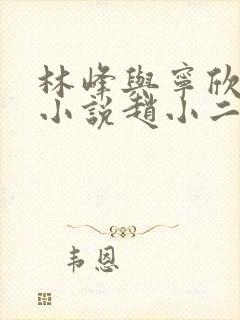 林峰與寧欣
小說趙小二
韦恩